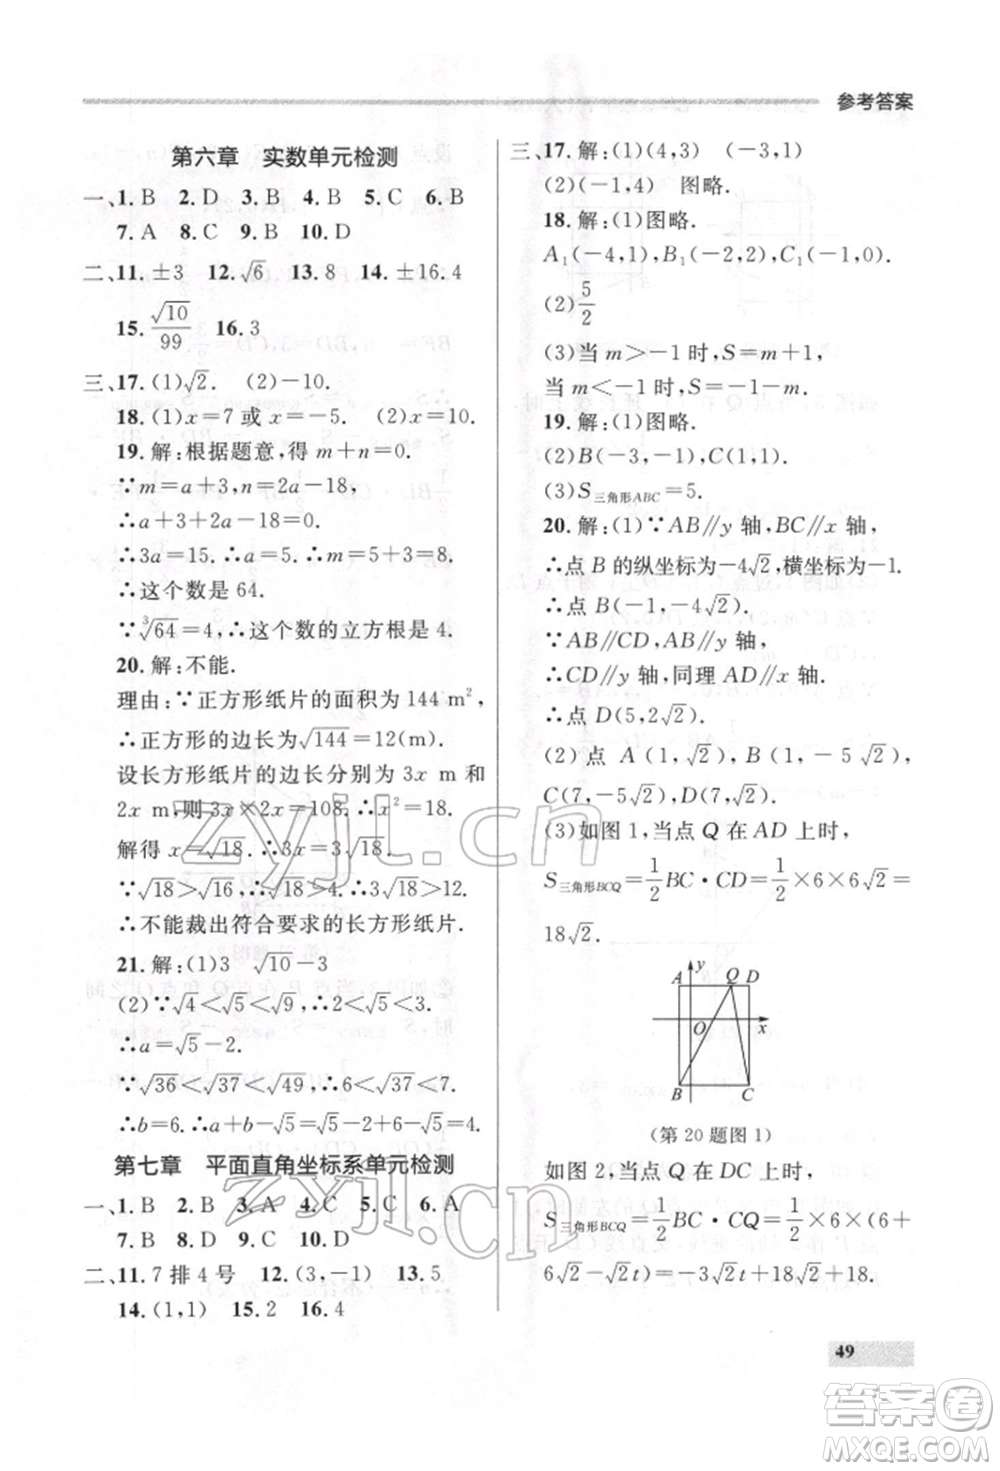 参考答案
第六章　实数单元检测
一、1. B　2. D　3. B　4. B　5. C　6. B
7. A　8. C　9. B　10. D
二、11. ±3　12. √6　13. 8　14. ±16.4
15. √10/99　16. 3
三、17. (1)√2.　(2)−10.
18. (1)x=7 或 x=−5.　(2)x=10.
19. 解:根据题意,得 m+n=0.
∵m=a+3,n=2a−18,
∴a+3+2a−18=0.
∴3a=15. ∴a=5. ∴m=5+3=8.
∴这个数是 64.
∵∛64=4,∴这个数的立方根是 4.
20. 解:不能.
理由:∵正方形纸片的面积为 144 m²,
∴正方形的边长为√144=12(m).
设长方形纸片的边长分别为 3x m 和
2x m,则 3x×2x=108. ∴x²=18.
解得 x=√18. ∴3x=3√18.
∵√18>√16,∴√18>4. ∴3√18>12.
∴不能裁出符合要求的长方形纸片.
21. 解:(1)3　√10−3
(2)∵√4<√5<√9,∴2<√5<3.
∴a=√5−2.
∵√36<√37<√49,∴6<√37<7.
∴b=6. ∴a+b−√5=√5−2+6−√5=4.
第七章　平面直角坐标系单元检测
一、1. B　2. B　3. A　4. C　5. C　6. A
7. B　8. B　9. C　10. D
二、11. 7 排 4 号　12. (3,−1)　13. 5
14. (1,1)　15. 2　16. 4
三、17. 解:(1)(4,3)　(−3,1)
(2)(−1,4)　图略.
18. 解:(1)图略.
A₁(−4,1),B₁(−2,2),C₁(−1,0).
(2)5/2
(3)当 m>−1 时,S=m+1,
当 m<−1 时,S=−1−m.
19. 解:(1)图略.
(2)B(−3,−1),C(1,1)
(3)S三角形ABC=5.
20. 解:(1)∵AB∥y 轴,BC∥x 轴,
∴点 B 的纵坐标为−4√2,横坐标为−1.
∴点 B(−1,−4√2).
∵AB∥CD,AB∥y 轴,
∴CD∥y 轴,同理 AD∥x 轴.
∴点 D(5,2√2).
(2)点 A(1,√2),B(1,−5√2),
C(7,−5√2),D(7,√2).
(3)如图 1,当点 Q 在 AD 上时,
S三角形BCQ=1/2BC·CD=1/2×6×6√2=
18√2.
A　y　Q　D
O　x
B　C
(第 20 题图 1)
如图 2,当点 Q 在 DC 上时,
S三角形BCQ=1/2BC·CQ=1/2×6×(6+
6√2−√2t)=−3√2t+18√2+18.
49
zyjl.cn
zyjl.cn
答案圈
MXQE.COM